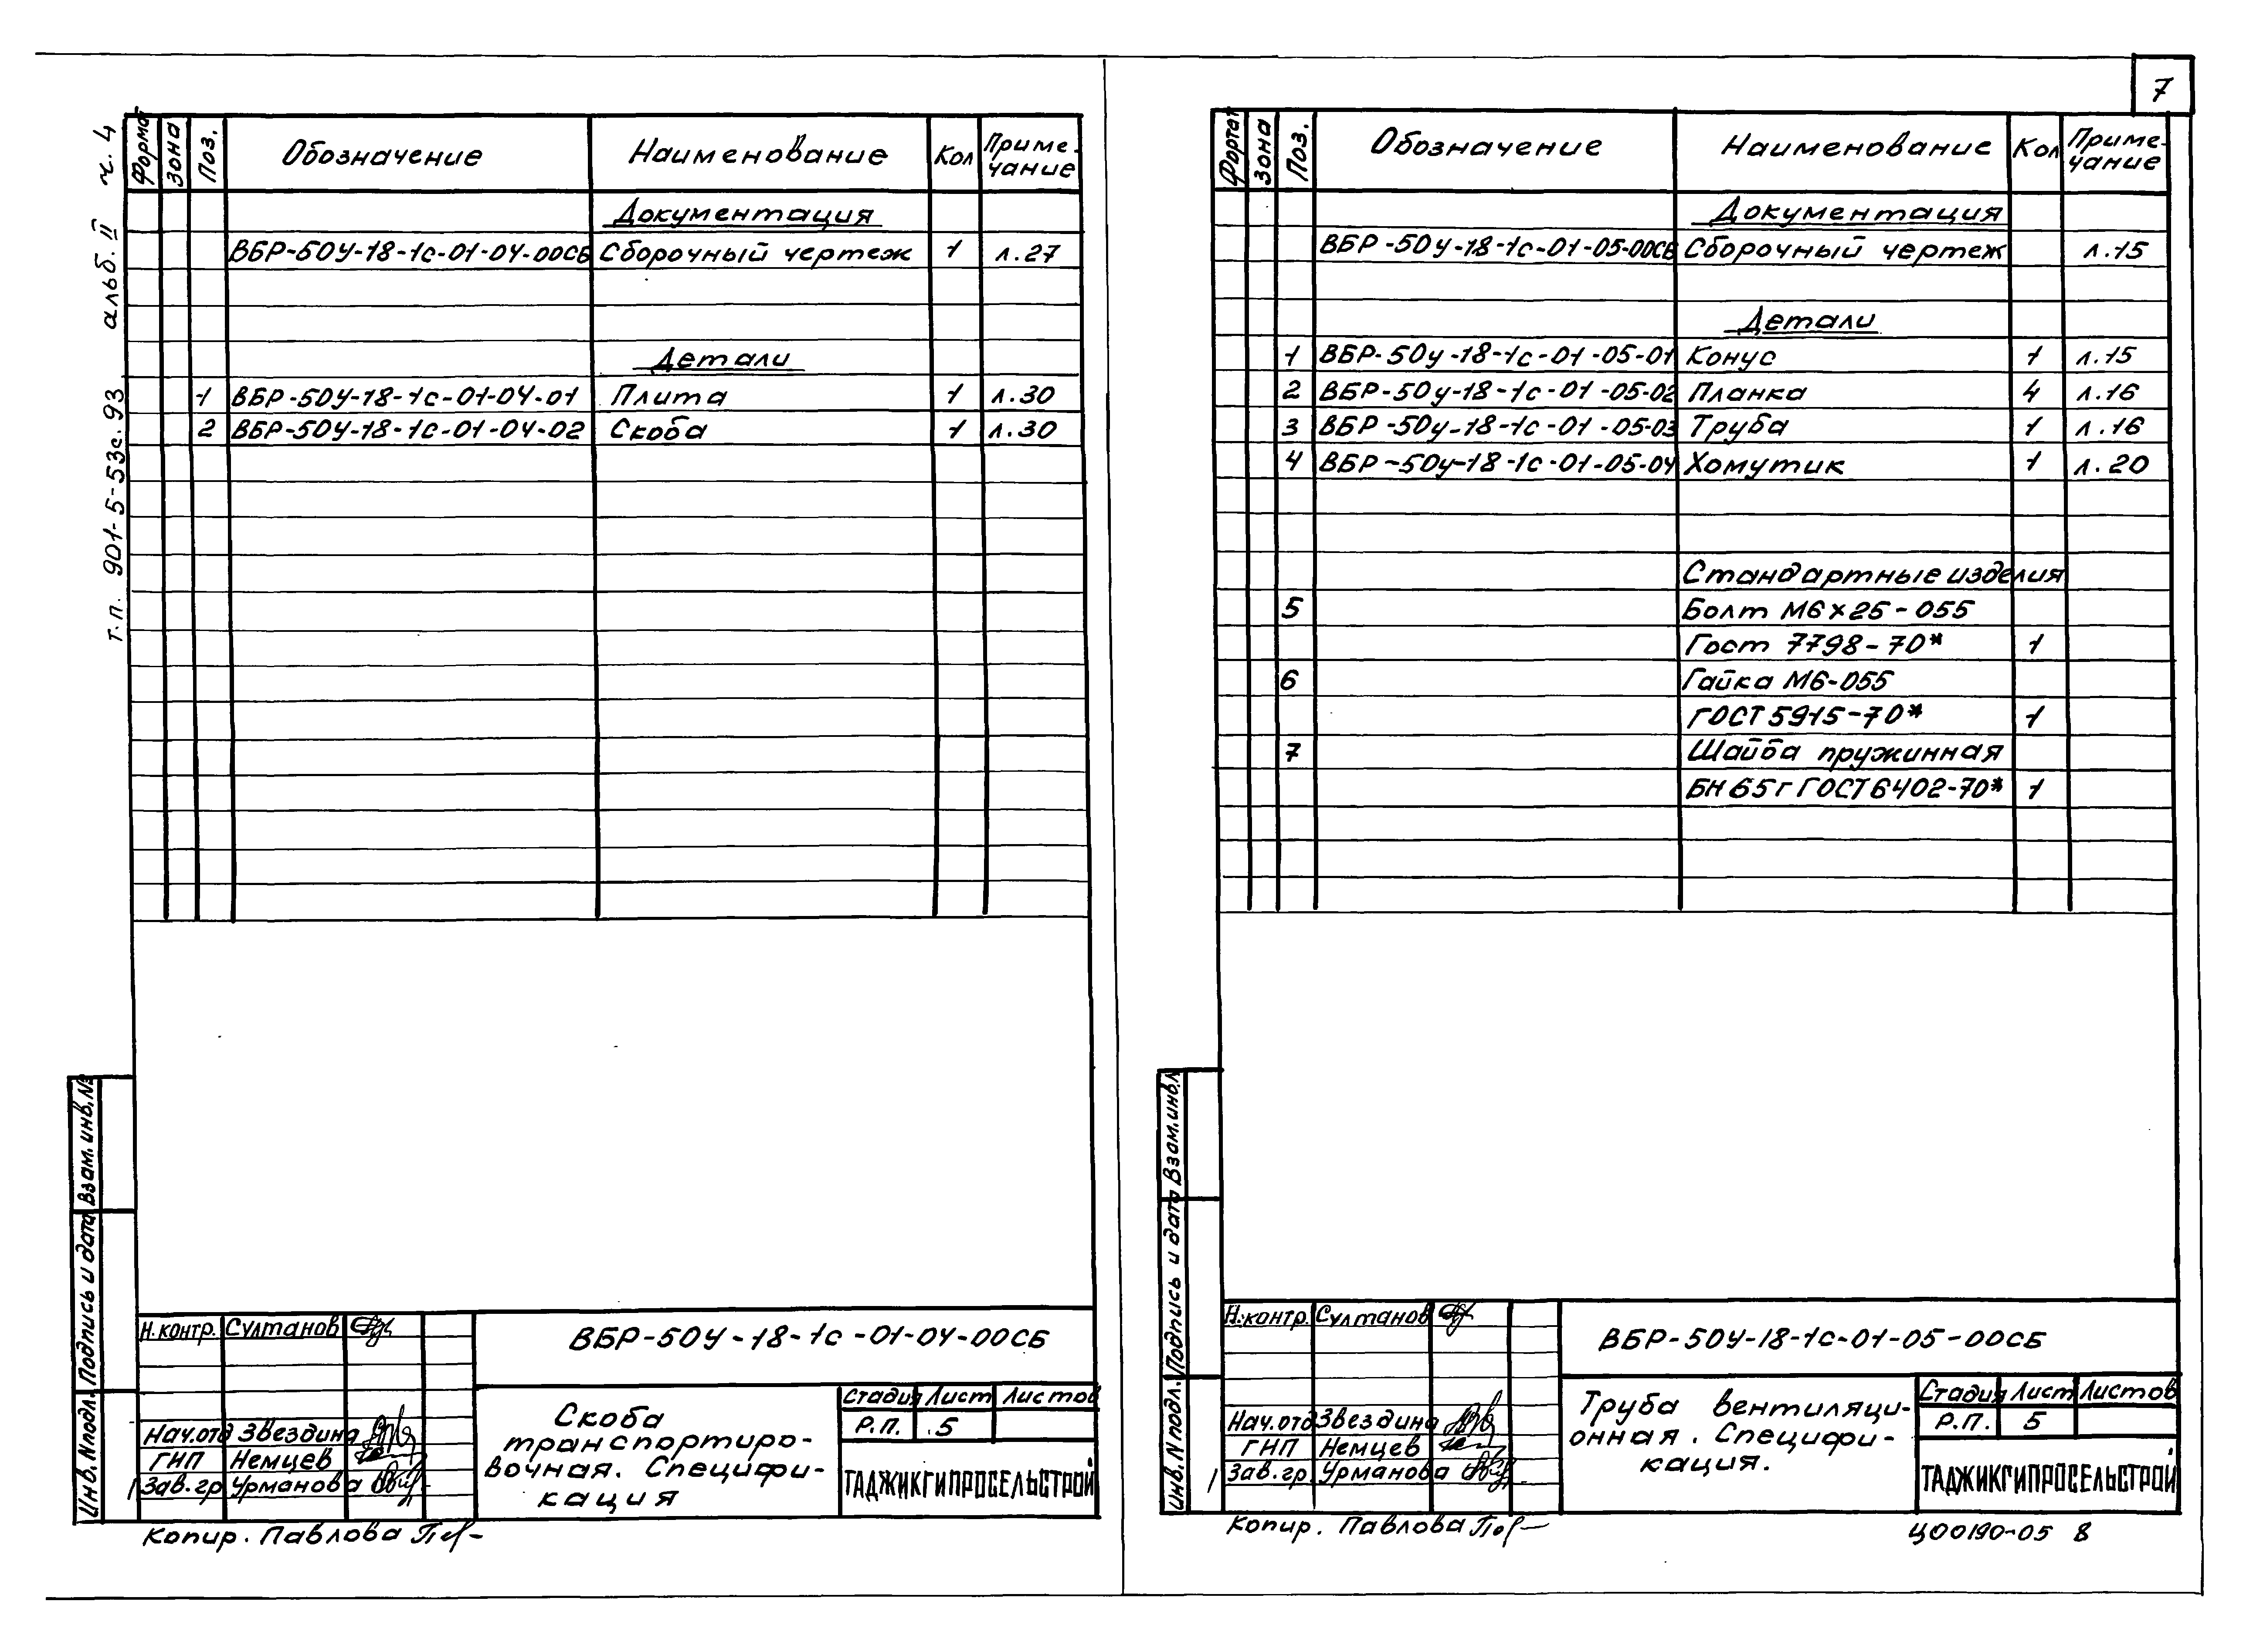 7
т.п. 901-5-53с.93 альб. II ч. 4
Форма Зона Поз. Обозначение Наименование Кол Приме-
чание
Документация
ВБР-50У-18-1с-01-04-00СБ Сборочный чертеж 1 л.27
Детали
1 ВБР-50У-18-1с-01-04-01 Плита 1 л.30
2 ВБР-50У-18-1с-01-04-02 Скоба 1 л.30
Инв.Nподл. Подпись и дата Взам.инв.№
Н.контр. Султанов
ВБР-50У-18-1с-01-04-00СБ
Нач.отд Звездина
ГНП Немцев
1 Зав.гр Урманова
Скоба
транспортиро-
вочная. Специфи-
кация
Стадия Лист Листов
Р.П. 5
ТАДЖИКГИПРОСЕЛЬСТРОЙ
Копир. Павлова
Формат Зона Поз. Обозначение Наименование Кол Приме-
чание
Документация
ВБР-50у-18-1с-01-05-00СБ Сборочный чертеж л.15
Детали
1 ВБР-50у-18-1с-01-05-01 Конус 1 л.15
2 ВБР-50у-18-1с-01-05-02 Планка 4 л.16
3 ВБР-50у-18-1с-01-05-03 Труба 1 л.16
4 ВБР-50у-18-1с-01-05-04 Хомутик 1 л.20
Стандартные изделия
5 Болт М6х25-055
Гост 7798-70* 1
6 Гайка М6-055
ГОСТ 5915-70* 1
7 Шайба пружинная
БН65г ГОСТ6402-70* 1
Инв.Nподл. Подпись и дата Взам.инв.№
Н.контр. Султанов
ВБР-50У-18-1с-01-05-00СБ
Нач.отд Звездина
ГНП Немцев
1 Зав.гр. Урманова
Труба вентиляци-
онная. Специфи-
кация.
Стадия Лист Листов
Р.П. 5
ТАДЖИКГИПРОСЕЛЬСТРОЙ
Копир. Павлова
Ц00190-05 8